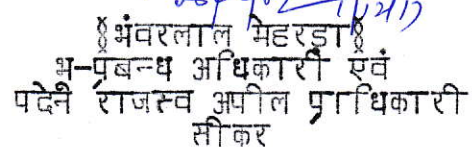 §भंवरलाल मेहरड़ा§
भ-प्रबन्ध अधिकारी एवं
पदेने राजस्व अपील प्राधिकारी
सीकर